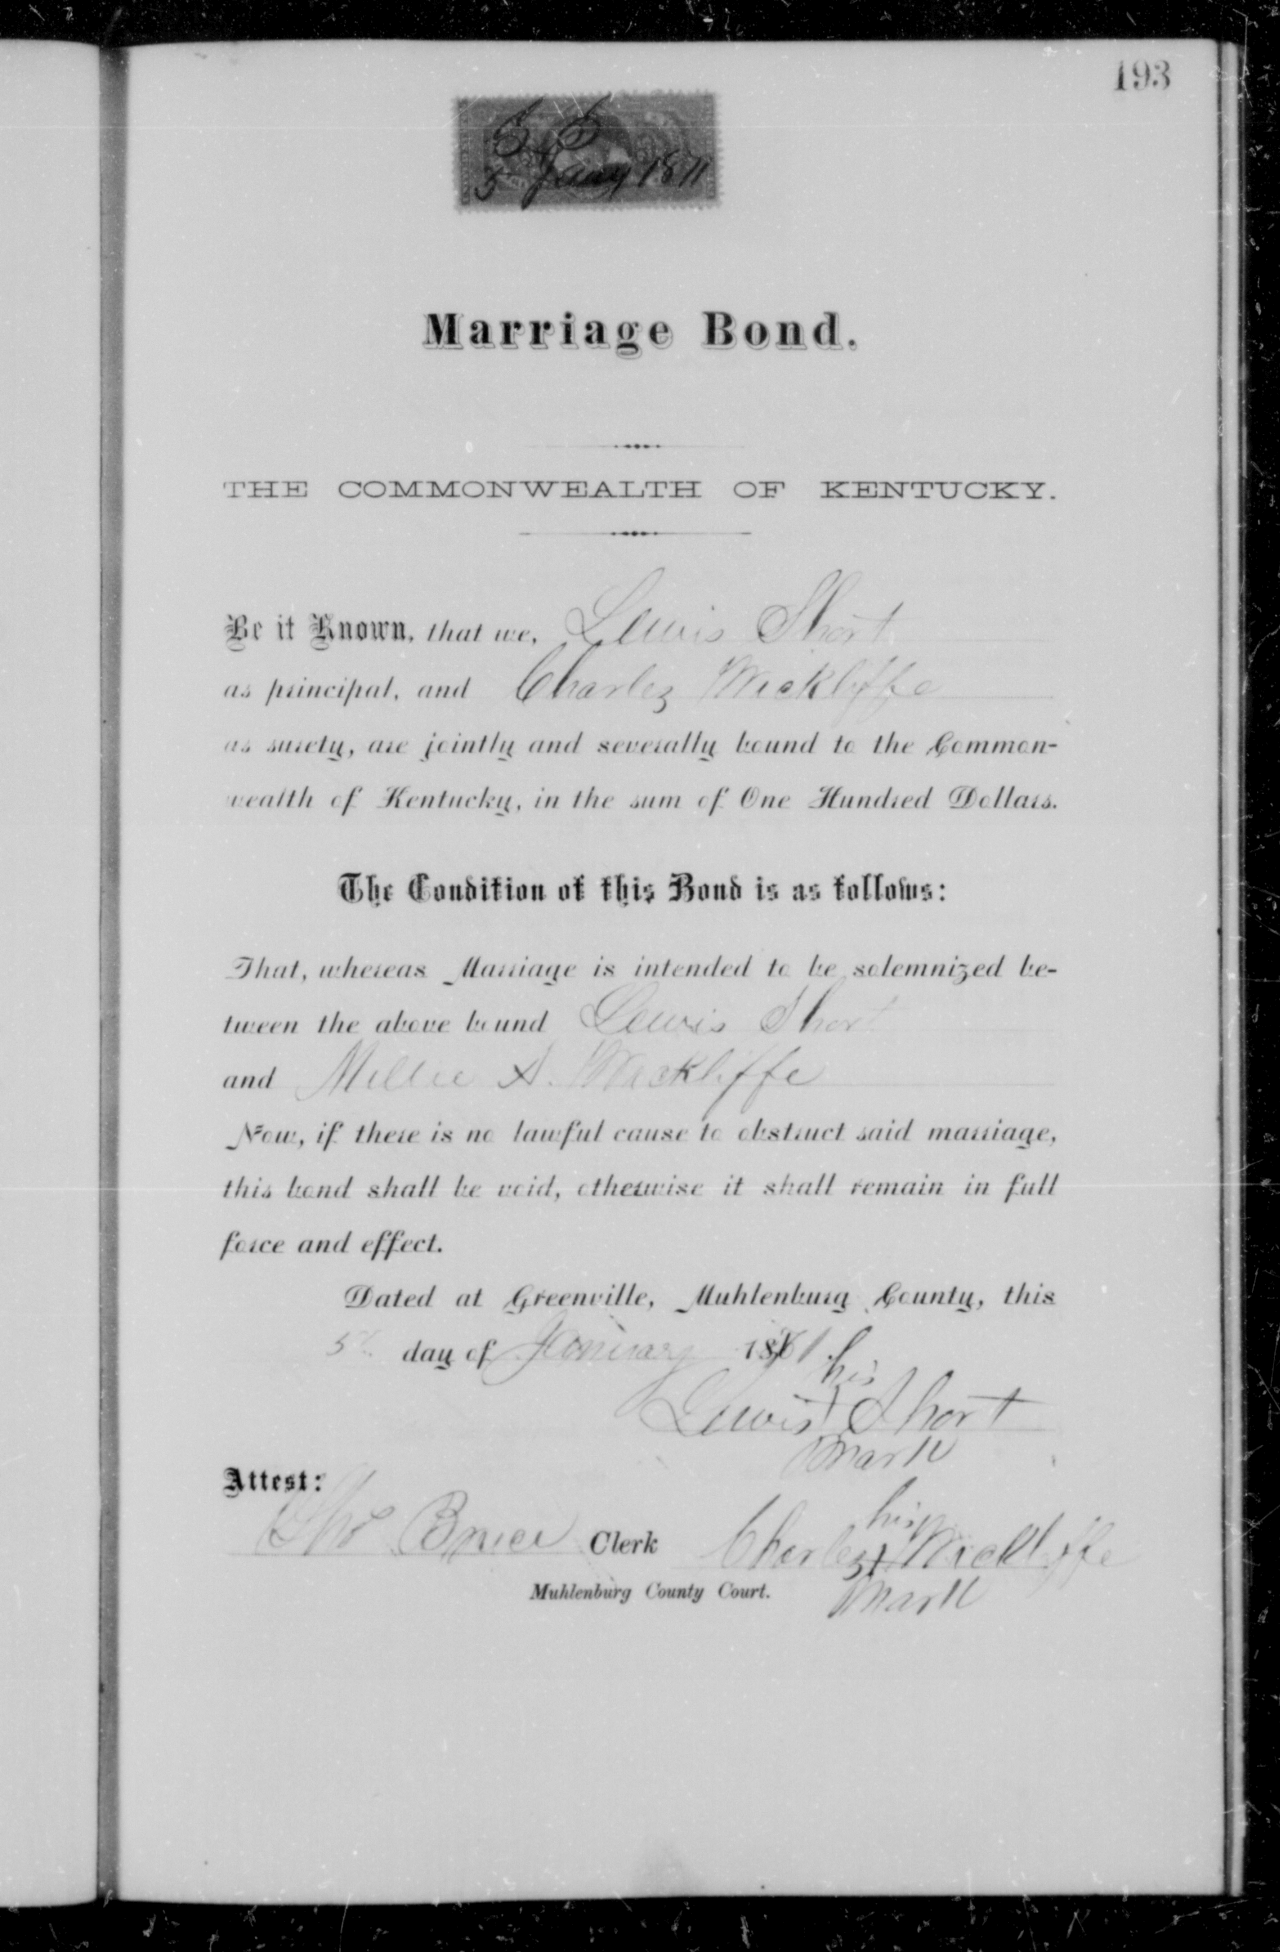 193
5 Jany 1871
Marriage Bond.
THE COMMONWEALTH OF KENTUCKY.
Be it Known, that we, Lewis Short
as principal, and Charles Wickliffe
as surety, are jointly and severally bound to the Common-
wealth of Kentucky, in the sum of One Hundred Dollars.
The Condition of this Bond is as follows:
That, whereas Marriage is intended to be solemnized be-
tween the above bound Lewis Short
and Millie A. Wickliffe
Now, if there is no lawful cause to obstruct said marriage,
this bond shall be void, otherwise it shall remain in full
force and effect.
Dated at Greenville, Muhlenburg County, this
5th day of January 1871.
his
Lewis X Short
mark
Attest:
Tho Bruce Clerk
his
Charles X Wickliffe
mark
Muhlenburg County Court.